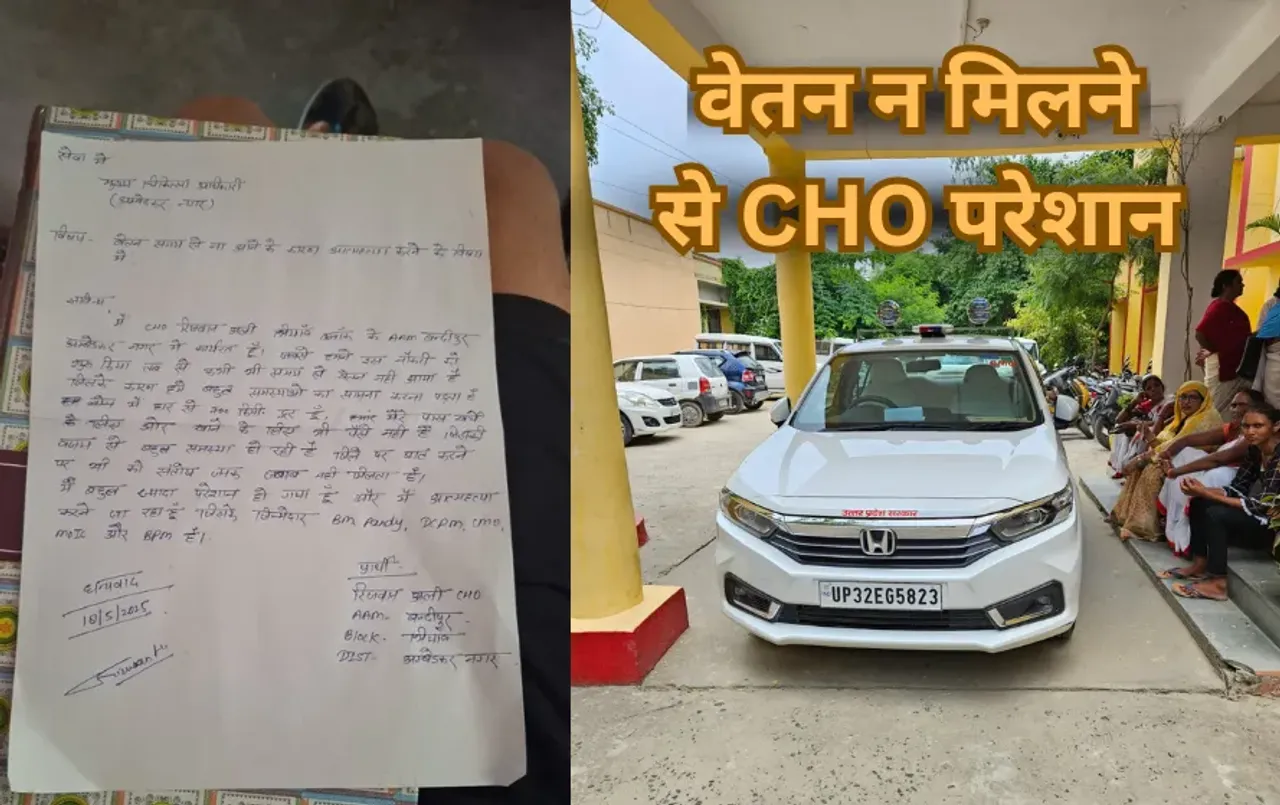 सेवा में
मुख्य चिकित्सा अधिकारी
(अम्बेडकर नगर)
विषय- वेतन समय से ना आने के कारण आत्महत्या करने के विषय
में
महोदय,
में CHO रिजवान अली ब्लॉक के AAM
अम्बेडकर नगर में कार्यरत हूँ। हमने इस नौकरी को
शुरू किया तब से कभी भी समय से वेतन नही आया है
जिसके कारण हमें बहुत समस्याओं का सामना करना पड़ता है
में घर से 700 किमी दूर हूँ, मेरे पास खर्चे
के लिए और खाने के लिए भी पैसे नहीं है जिसकी
वजह से बहुत समस्या हो रही है जिले पर बात करने
पर भी कोई संतोष जनक जवाब नही मिलता है।
में बहुत ज्यादा परेशान हो गया हूँ और में आत्महत्या
करने जा रहा हूँ जिसके जिम्मेदार BM Pandy, DCPM, CMO,
MOIC और BPM हैं।
धन्यवाद
10/5/2025
प्रार्थी
रिजवान अली CHO
AAM-
Block-
DIST- अम्बेडकर नगर
वेतन न मिलने
से CHO परेशान
उत्तर प्रदेश सरकार
UP32EG5823